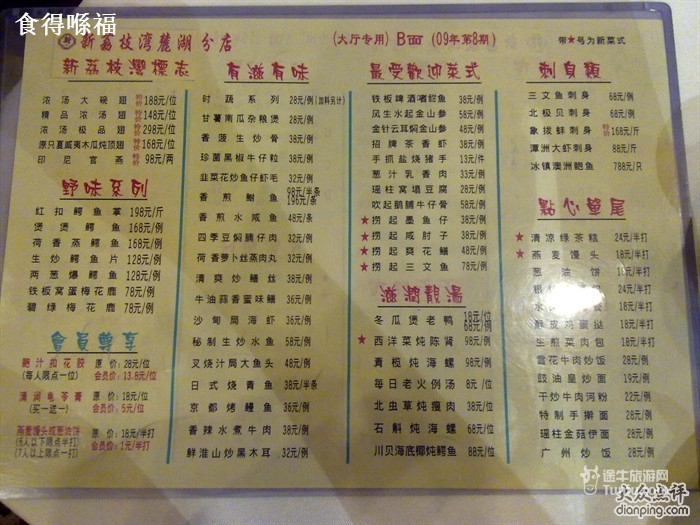 食得喺福
新荔枝湾麓湖分店
(大厅专用) B面 (09年第8期)
带★号为新菜式
新荔枝灣標志
浓汤大碗翅 特价 188元/位
精品浓汤翅 特价 148元/位
浓汤极品翅 特价 298元/位
原只夏威夷木瓜炖翅 特价 168元/位
印尼官燕 特价 98元/两
野味系列
红扣鳄鱼掌 198元/斤
煲煲鳄鱼 168元/例
荷香蒸鳄鱼 168元/例
生炒鳄鱼片 128元/例
两葱爆鳄鱼 128元/例
铁板窝蛋梅花鹿 78元/例
碧绿梅花鹿 78元/例
會員尊享
鲍汁扣花胶 原价:28元/位
(每人限点一位) 会员价:13.8元/位
清润龟苓膏 原价:18元/位
(买一送一) 会员价:5元/位
燕麦馒头或葱油饼 原价:18元/半打
(6人以下限点半打) 会员价:1元/半打
(7人以上限点一打)
有滋有味
时蔬系列 28元/例(加料另计)
甘薯南瓜杂粮煲 28元/例
香菠生炒骨 38元/例
珍菌黑椒牛仔粒 38元/例
韭菜花炒鱼仔虾毛 32元/例
香煎鮰鱼 98元/半条
196元/条
香煎水咸鱼 48元/条
四季豆焖腩仔肉 32元/例
荷香萝卜丝蒸肉丸 32元/例
清爽炒鳝丝 38元/例
牛油蒜香蜜味鳝 36元/例
沙甸局海虾 36元/例
秘制生炒水鱼 58元/例
叉烧汁局大鱼头 48元/例
日式烧青鱼 38元/半条
京都烤鳗鱼 38元/例
香辣水煮牛肉 38元/例
鲜淮山炒黑木耳 32元/例
最受歡迎菜式
铁板啤酒嗜鮰鱼 38元/例
风生水起金山参 58元/例
金针云耳焖金山参 48元/例
招牌茶香虾 38元/例
手抓盐烧猪手 13元/件
葱汁乳香肉 33元/例
瑶柱窝塌豆腐 28元/例
吹起鹅脯牛仔骨 58元/例
★ 捞起墨鱼仔 38元/例
★ 捞起咸肘子 38元/例
★ 捞起爽花鳝 48元/例
★ 捞起三文鱼 78元/例
滋潤靚湯
冬瓜煲老鸭 18元/位
68元/例
★ 西洋菜炖陈肾 98元/例
青榄炖海螺 98元/例
每日老火例汤 8元/位
北虫草炖瘦肉 38元/位
石斛炖海螺 68元/位
川贝海底椰炖鳄鱼 88元/位
刺身類
三文鱼刺身 68元/例
北极贝刺身 68元/例
象拔蚌刺身 特价 168元/斤
潭洲大虾刺身 特价 168元/斤
冰镇澳洲鲍鱼 788元/只
點心單尾
★ 清凉绿茶糕 24元/半打
★ 燕麦馒头 18元/半打
葱油饼 10元/半打
18元/半打
18元/半打
18元/半打
生煎菜肉包 18元/半打
雪花牛肉炒饭 28元/例
豉油皇炒面 19元/例
干炒牛肉河粉 22元/例
特制手擀面 28元/例
瑶柱金菇伊面 28元/例
广州炒饭 28元/例
途牛旅游网
大众点评
dianping.com